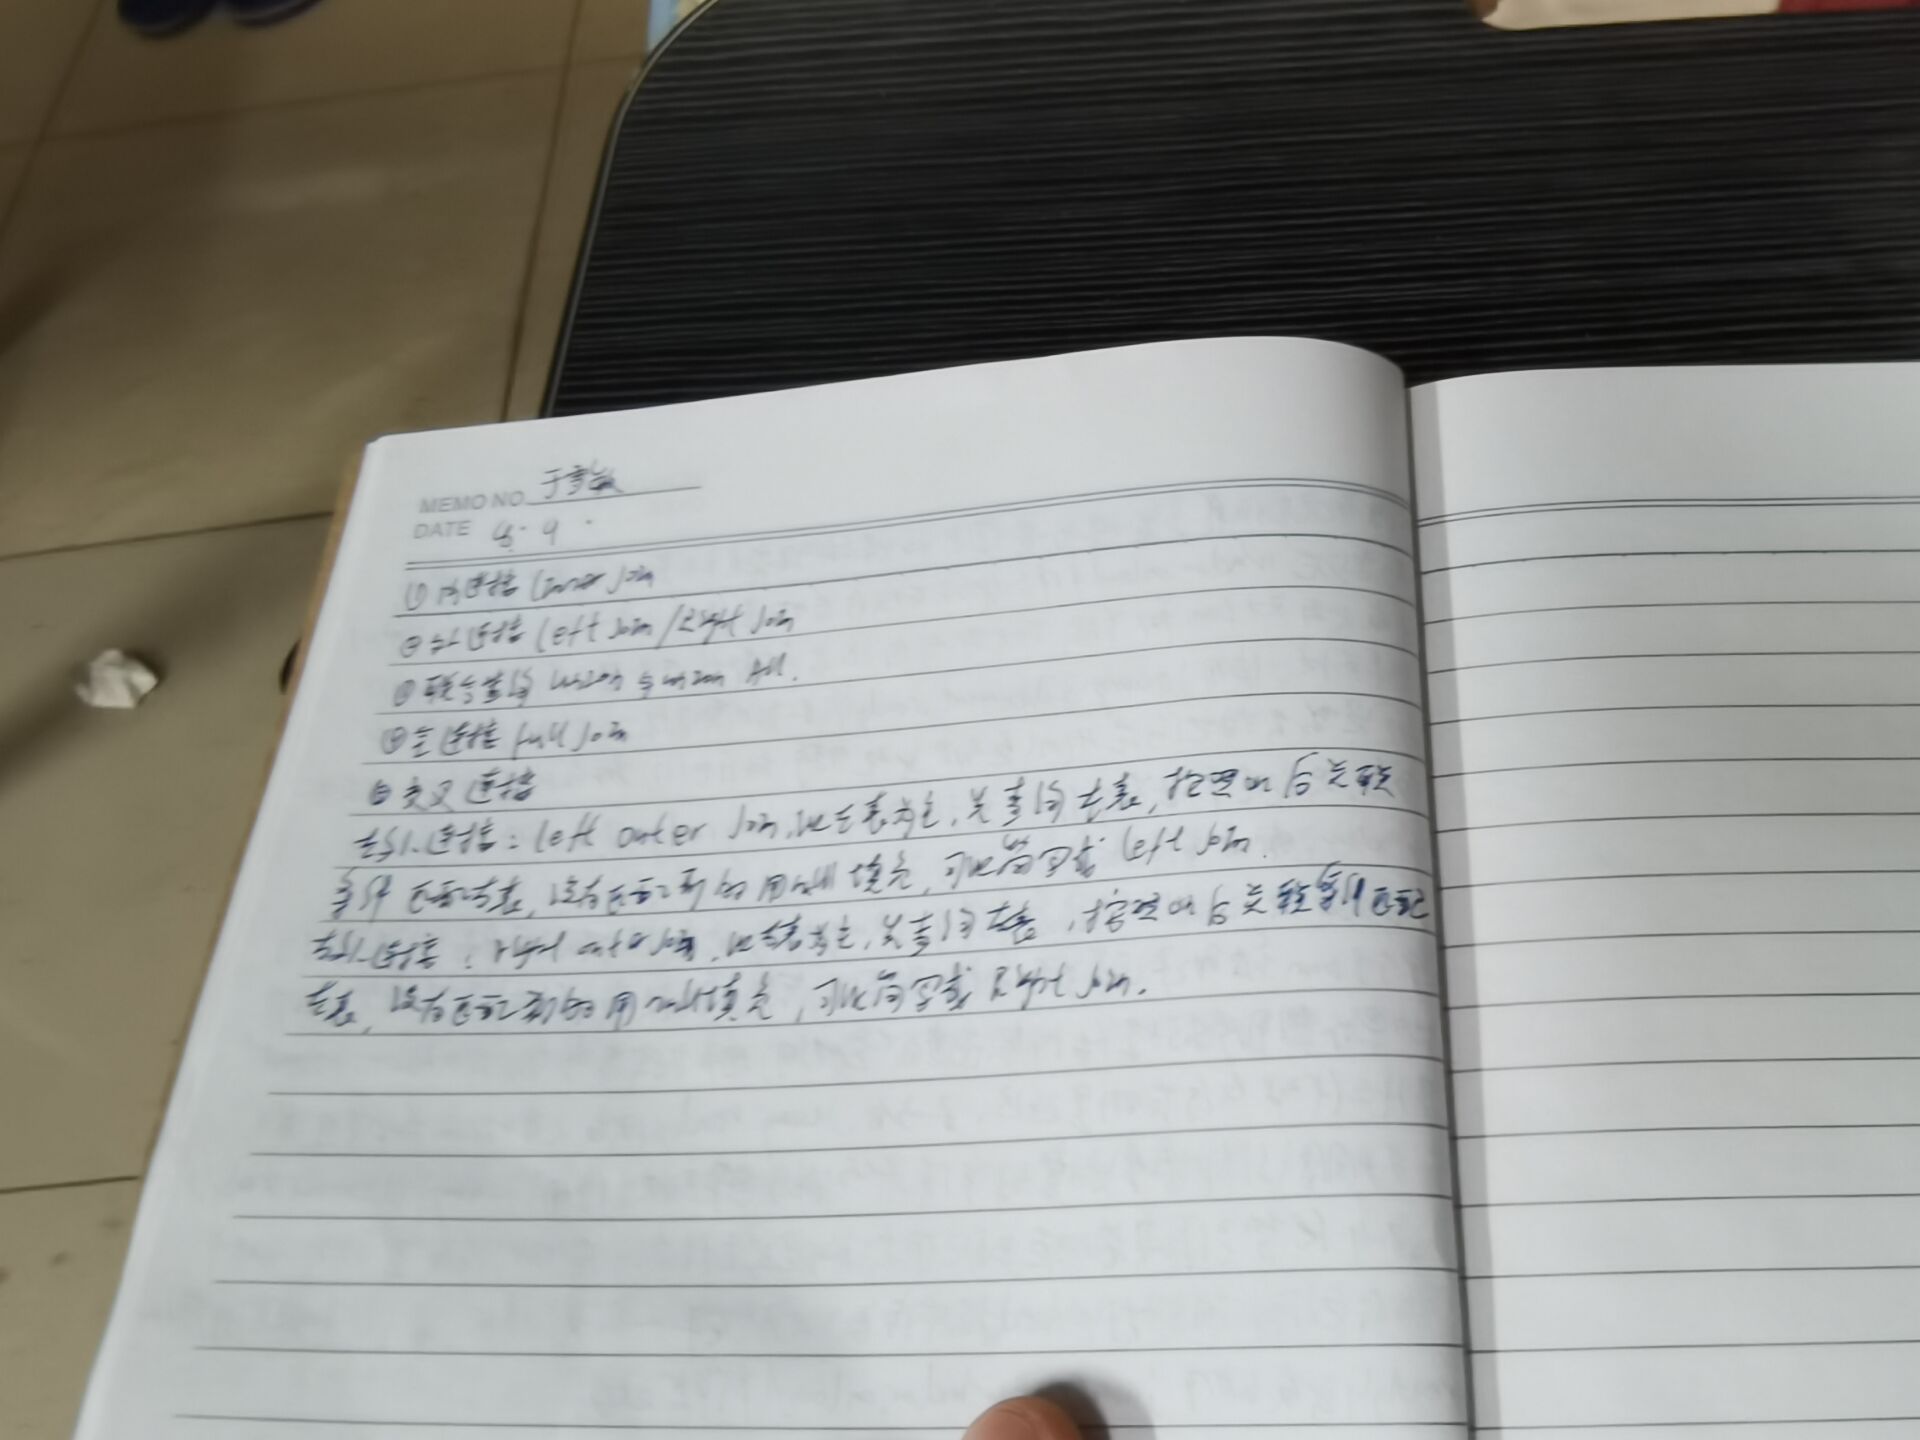 MEMO NO. 于
DATE 9.
① 内连接 Inner Join
② 外连接 left Join/Right Join
③ 联合查询 union 与 union All.
④ 全连接 full Join
⑤ 交叉连接
左外连接：left outer Join, 以左表为主, 先查询左表, 按照on后关联
条件匹配右表, 没有匹配到的用null填充, 可以简写成 left join.
右外连接：right outer join, 以右表为主, 先查询右表, 按照on后关联条件匹配
左表, 没有匹配到的用null填充, 可以简写成 Right join.